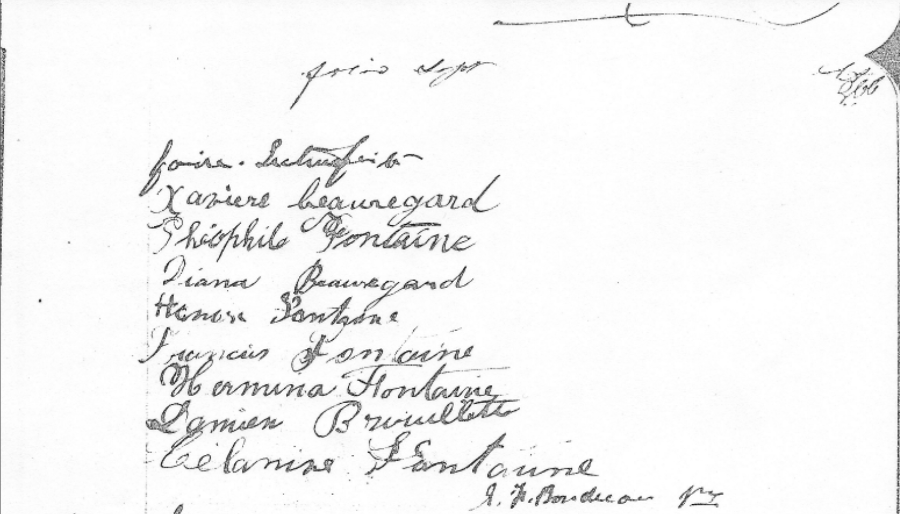 folio sept
faire. Lecture faite
Xaviere beauregard
Théophile Fontaine
Diana Beauregard
Honore Fontaine
Francis Fontaine
Hermina Fontaine
Damien Brouillette
Célanire Fontaine
Boudreau ptre